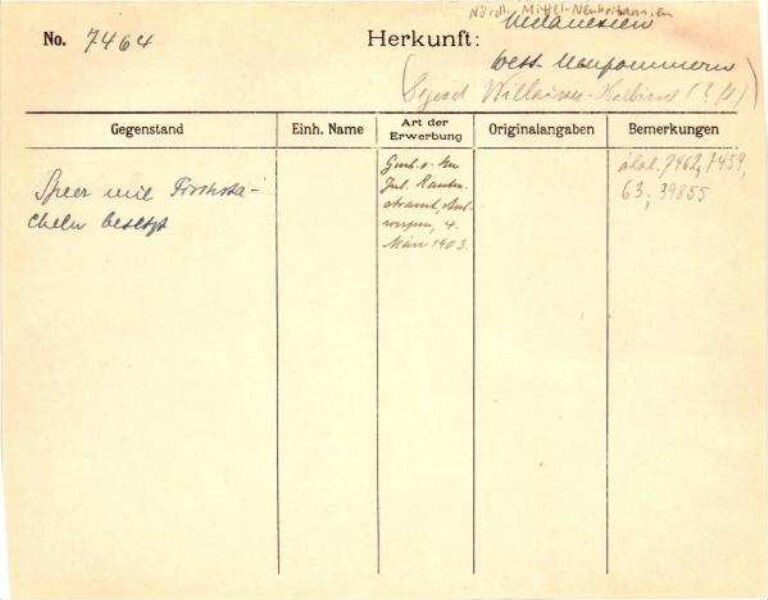 No. 7464
Herkunft:
Nördl. Mittel-Neubritannien
Melanesien
West Neupommern
(Gegend Willaumez-Halbinsel (?)
Gegenstand
Einh. Name
Art der
Erwerbung
Originalangaben
Bemerkungen
Speer mit Fischsta-
cheln besetzt
Jul.
4.
März 1903.
7462, 7459,
63; 39855